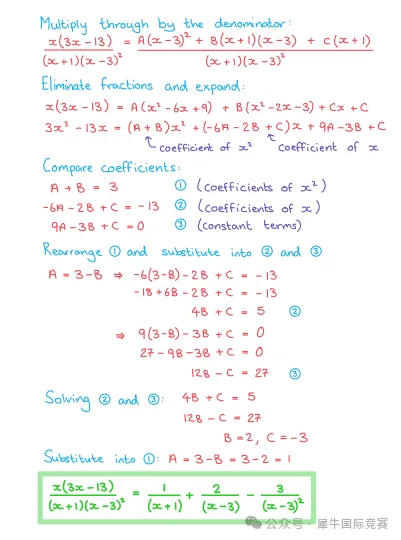 Multiply through by the denominator:
x(3x-13)/((x+1)(x-3)²) = (A(x-3)² + B(x+1)(x-3) + C(x+1))/((x+1)(x-3)²)
Eliminate fractions and expand:
x(3x-13) = A(x²-6x+9) + B(x²-2x-3) + Cx + C
3x²-13x = (A+B)x² + (-6A-2B+C)x + 9A-3B+C
coefficient of x² coefficient of x
Compare coefficients:
A+B = 3 ① (coefficients of x²)
-6A-2B+C = -13 ② (coefficients of x)
9A-3B+C = 0 ③ (constant terms)
Rearrange ① and substitute into ② and ③
A = 3-B ⇒ -6(3-B)-2B+C = -13
-18+6B-2B+C = -13
4B+C = 5 ②
⇒ 9(3-B)-3B+C = 0
27-9B-3B+C = 0
12B-C = 27 ③
Solving ② and ③: 4B+C = 5
12B-C = 27
B=2, C=-3
Substitute into ①: A = 3-B = 3-2 = 1
x(3x-13)/((x+1)(x-3)²) = 1/(x+1) + 2/(x-3) - 3/(x-3)²
公众号·犀牛国际竞赛